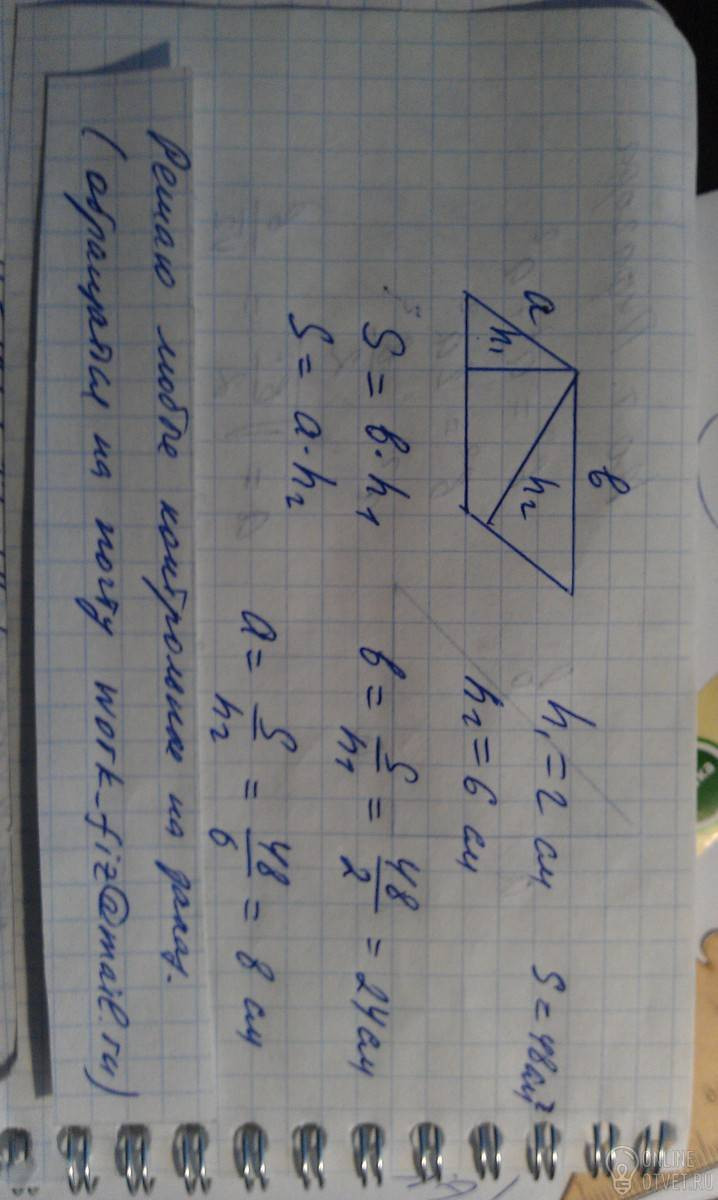 a
b
h₁
h₂
h₁ = 2 см
S = 48 см²
h₂ = 6 см
S = b·h₁
b = S/h₁ = 48/2 = 24 см
S = a·h₂
a = S/h₂ = 48/6 = 8 см
Решаю любые контрольные на заказ.
(обращаться на почту work_fiz@mail.ru)
ONLINE
OTVET.RU